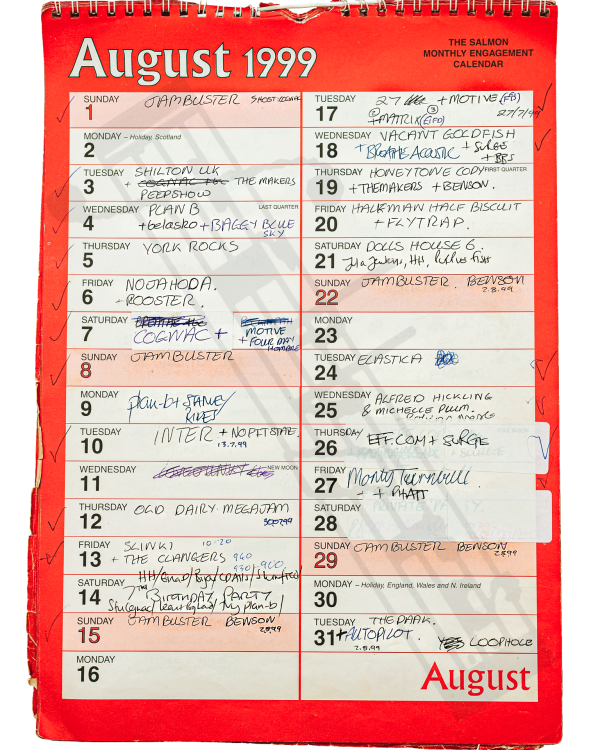 August 1999
THE SALMON
MONTHLY ENGAGEMENT
CALENDAR
SUNDAY
1
JAMBUSTER
MONDAY – Holiday, Scotland
2
TUESDAY
3
SHILTON UK
+ THE MAKERS
PEEPSHOW
WEDNESDAY
LAST QUARTER
4
PLAN B
+belasko + BAGGY BLUE
SKY
THURSDAY
5
YORK ROCKS
FRIDAY
6
NOJAHODA.
- ROOSTER.
SATURDAY
7
COGNAC +
MOTIVE
+ FOUR DAY
HOMBRE
SUNDAY
8
JAMBUSTER
MONDAY
9
plan-b + STANLEY
TUESDAY
10
INTER + NO PETSTATE.
13.7.99
WEDNESDAY
NEW MOON
11
THURSDAY
12
OLD DAIRY MEGAJAM
FRIDAY
13
SLINKI 10-20
+ THE CLANGERS 940
930-900
SATURDAY
14
BIRTHDAY PARTY
SUNDAY
15
JAMBUSTER BENSON
2.8.99
MONDAY
16
TUESDAY
17
27 + MOTIVE
+MATRIX
27/7/99
WEDNESDAY
18
VACANT GOLDFISH
+ BREATHE ACOUSTIC + SURGE
THURSDAY
FIRST QUARTER
19
HONEYTONE CODY
+THEMAKERS + BENSON.
FRIDAY
20
HALFMAN HALF BISCUIT
+ FLYTRAP.
SATURDAY
21
DOLLS HOUSE 6.
SUNDAY
22
JAMBUSTER. BENSON
2.8.99
MONDAY
23
TUESDAY
24
ELASTICA
WEDNESDAY
25
ALFRED HICKLING
& MICHELLE PLUM.
THURSDAY
26
EFFCOM + SURGE
FRIDAY
27
Monty Turnbull
+ PHATT
SATURDAY
28
PRIVATE PARTY.
SUNDAY
29
JAMBUSTER BENSON
2.8.99
MONDAY – Holiday, England, Wales and N. Ireland
30
TUESDAY
31
THE DARK.
+AUTOPILOT.
2.8.99
YES LOOPHOLE
August